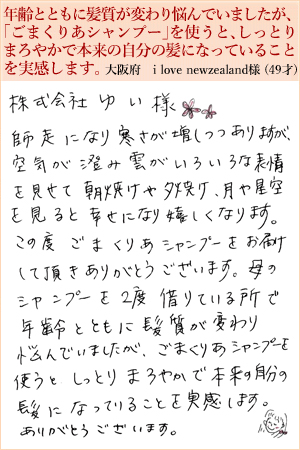 年齢とともに髪質が変わり悩んでいましたが、
「ごまくりあシャンプー」を使うと、しっとり
まろやかで本来の自分の髪になっていること
を実感します。大阪府　i love newzealand様（49才）
株式会社 ゆい様
師走になり寒さが増しつつありますが、
空気が澄み雲がいろいろな表情
を見せて 朝焼けや夕焼け、月や星空
を見ると幸せになり嬉しくなります。
この度 ごまくりあシャンプーをお届け
して頂きありがとうございます。母の
シャンプーを2度借りている所で
年齢とともに髪質が変わり
悩んでいましたが、ごまくりあシャンプーを
使うと しっとり まろやかで本来の自分の
髪になっていることを実感します。
ありがとうございます。